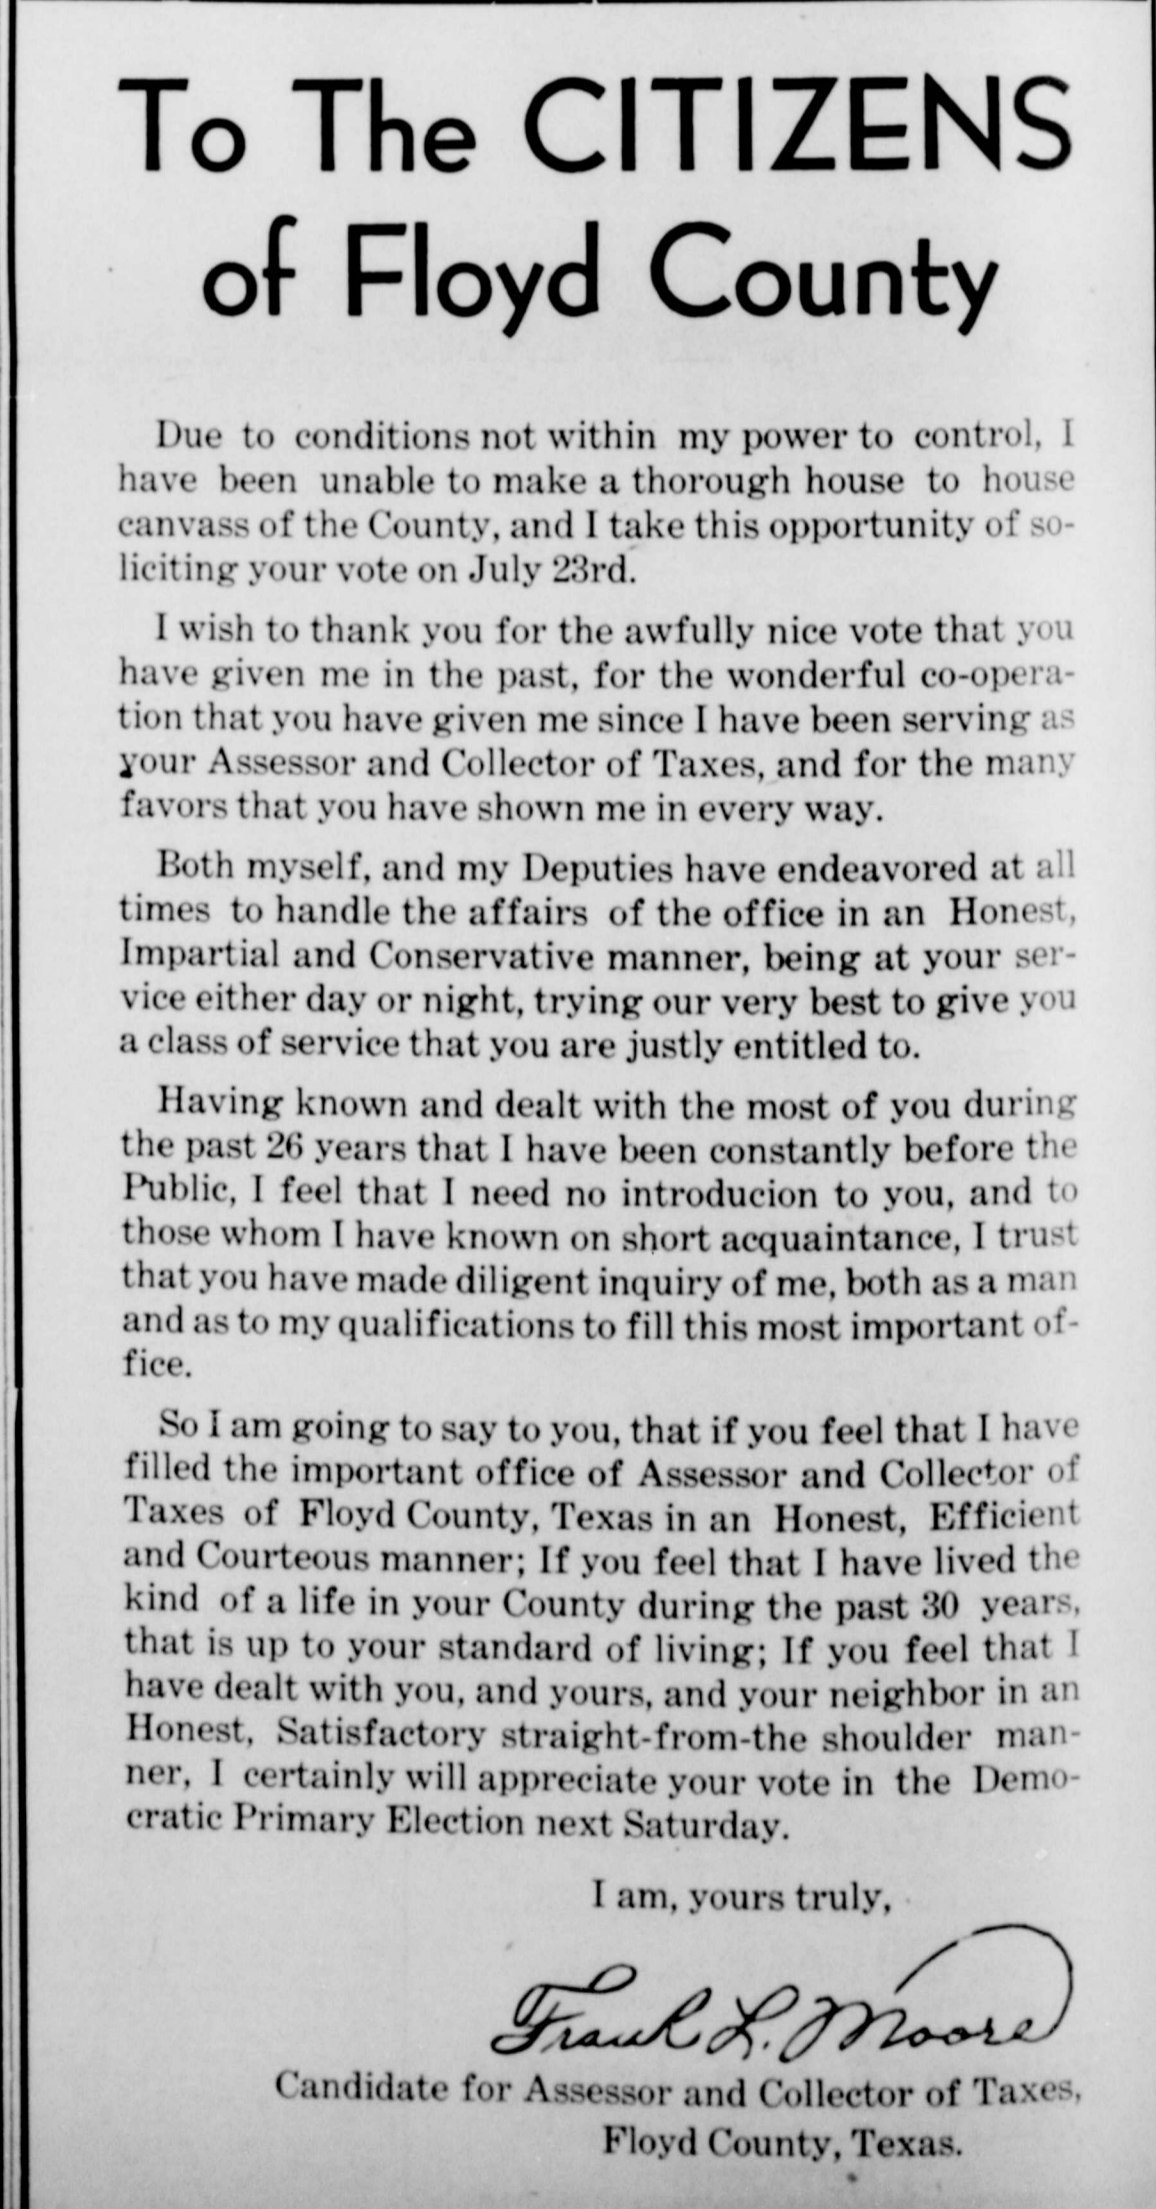 To The CITIZENS
of Floyd County
Due to conditions not within my power to control, I
have been unable to make a thorough house to house
canvass of the County, and I take this opportunity of so-
liciting your vote on July 23rd.
I wish to thank you for the awfully nice vote that you
have given me in the past, for the wonderful co-opera-
tion that you have given me since I have been serving as
your Assessor and Collector of Taxes, and for the many
favors that you have shown me in every way.
Both myself, and my Deputies have endeavored at all
times to handle the affairs of the office in an Honest,
Impartial and Conservative manner, being at your ser-
vice either day or night, trying our very best to give you
a class of service that you are justly entitled to.
Having known and dealt with the most of you during
the past 26 years that I have been constantly before the
Public, I feel that I need no introducion to you, and to
those whom I have known on short acquaintance, I trust
that you have made diligent inquiry of me, both as a man
and as to my qualifications to fill this most important of-
fice.
So I am going to say to you, that if you feel that I have
filled the important office of Assessor and Collector of
Taxes of Floyd County, Texas in an Honest, Efficient
and Courteous manner; If you feel that I have lived the
kind of a life in your County during the past 30 years,
that is up to your standard of living; If you feel that I
have dealt with you, and yours, and your neighbor in an
Honest, Satisfactory straight-from-the shoulder man-
ner, I certainly will appreciate your vote in the Demo-
cratic Primary Election next Saturday.
I am, yours truly,
Frank L. Moore
Candidate for Assessor and Collector of Taxes,
Floyd County, Texas.